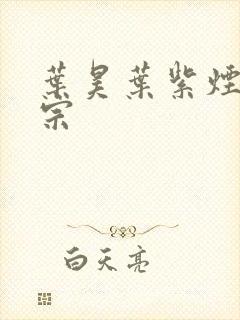 葉昊葉紫煙
宗
白天亮